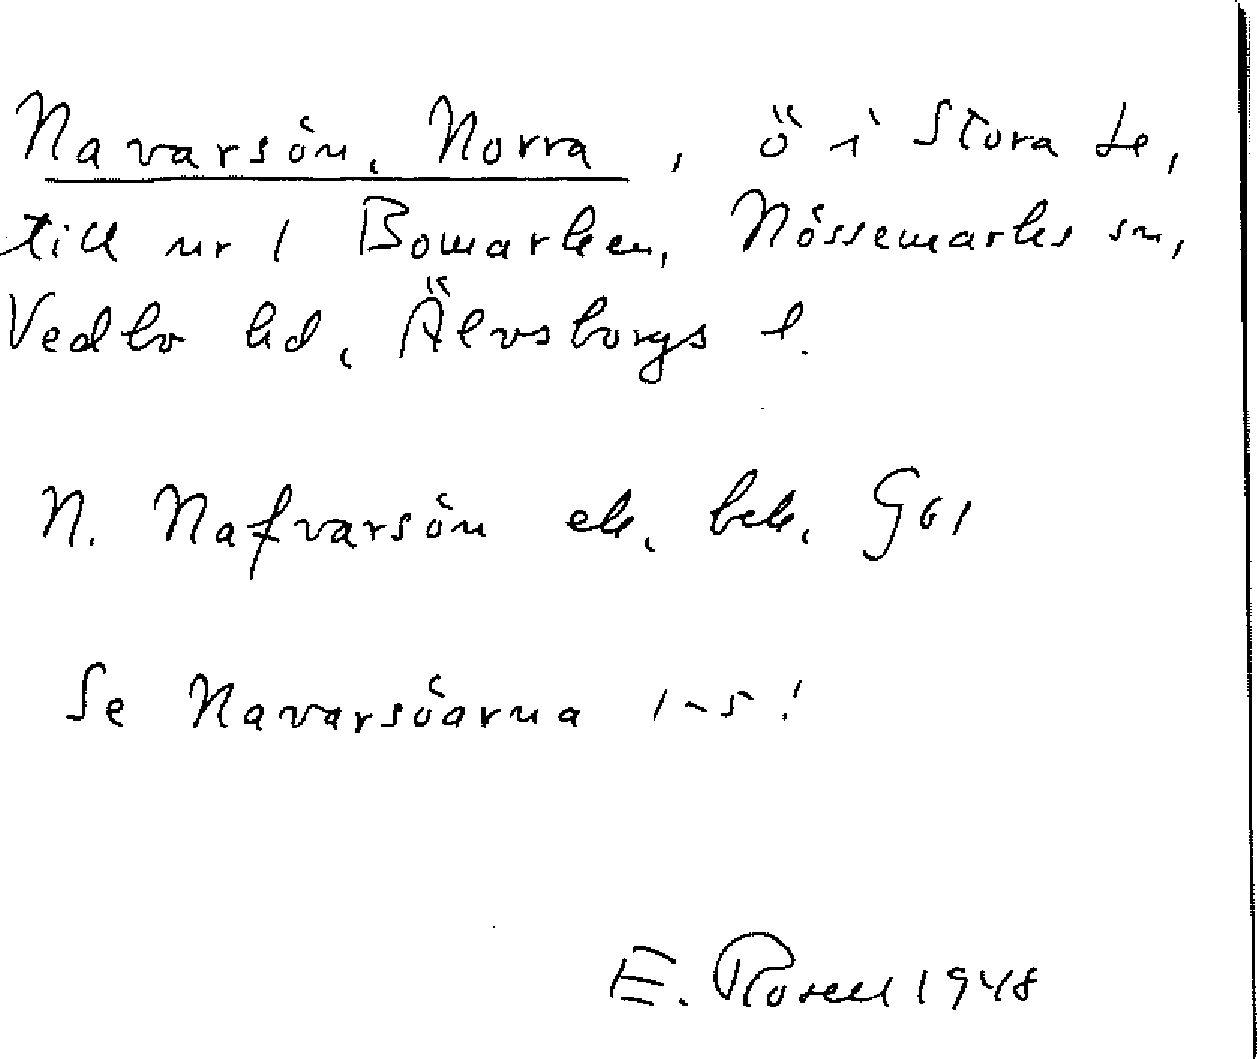 Navarsön, Norra, ö i Stora Le,
till nr 1 Bomarken, Nössemarks sn,
Vedbo hd, Älvsborgs l.
N. Nafvarsön ek. bek. G61
Se Navarsöarna 1-5!
E. Rosell 1948